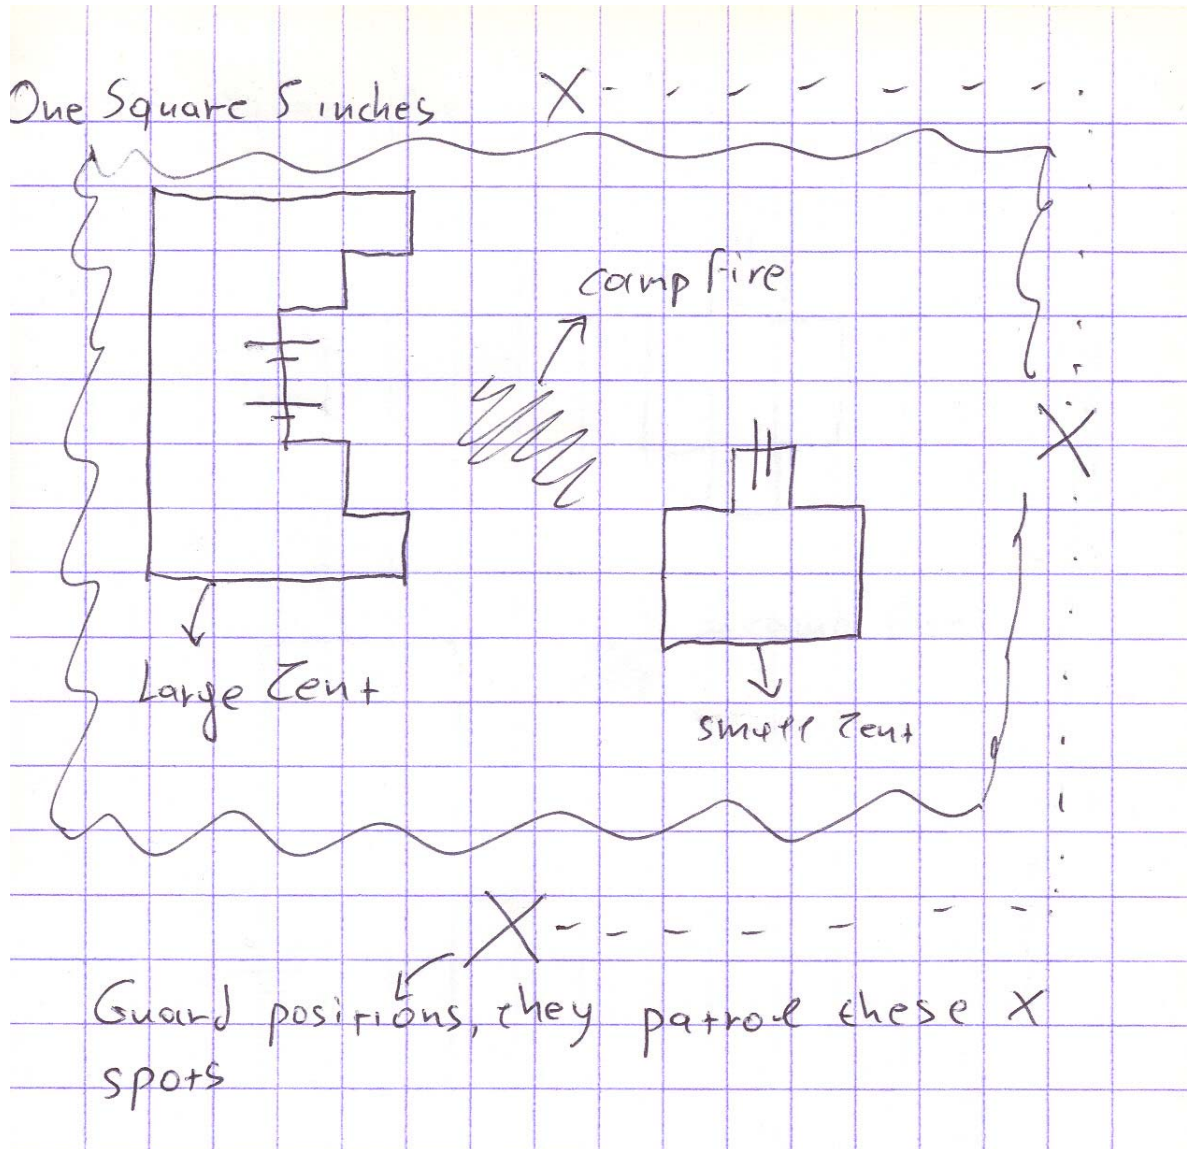 One Square 5 inches
campfire
Large Tent
small Tent
Guard positions, they patrol these X
spots